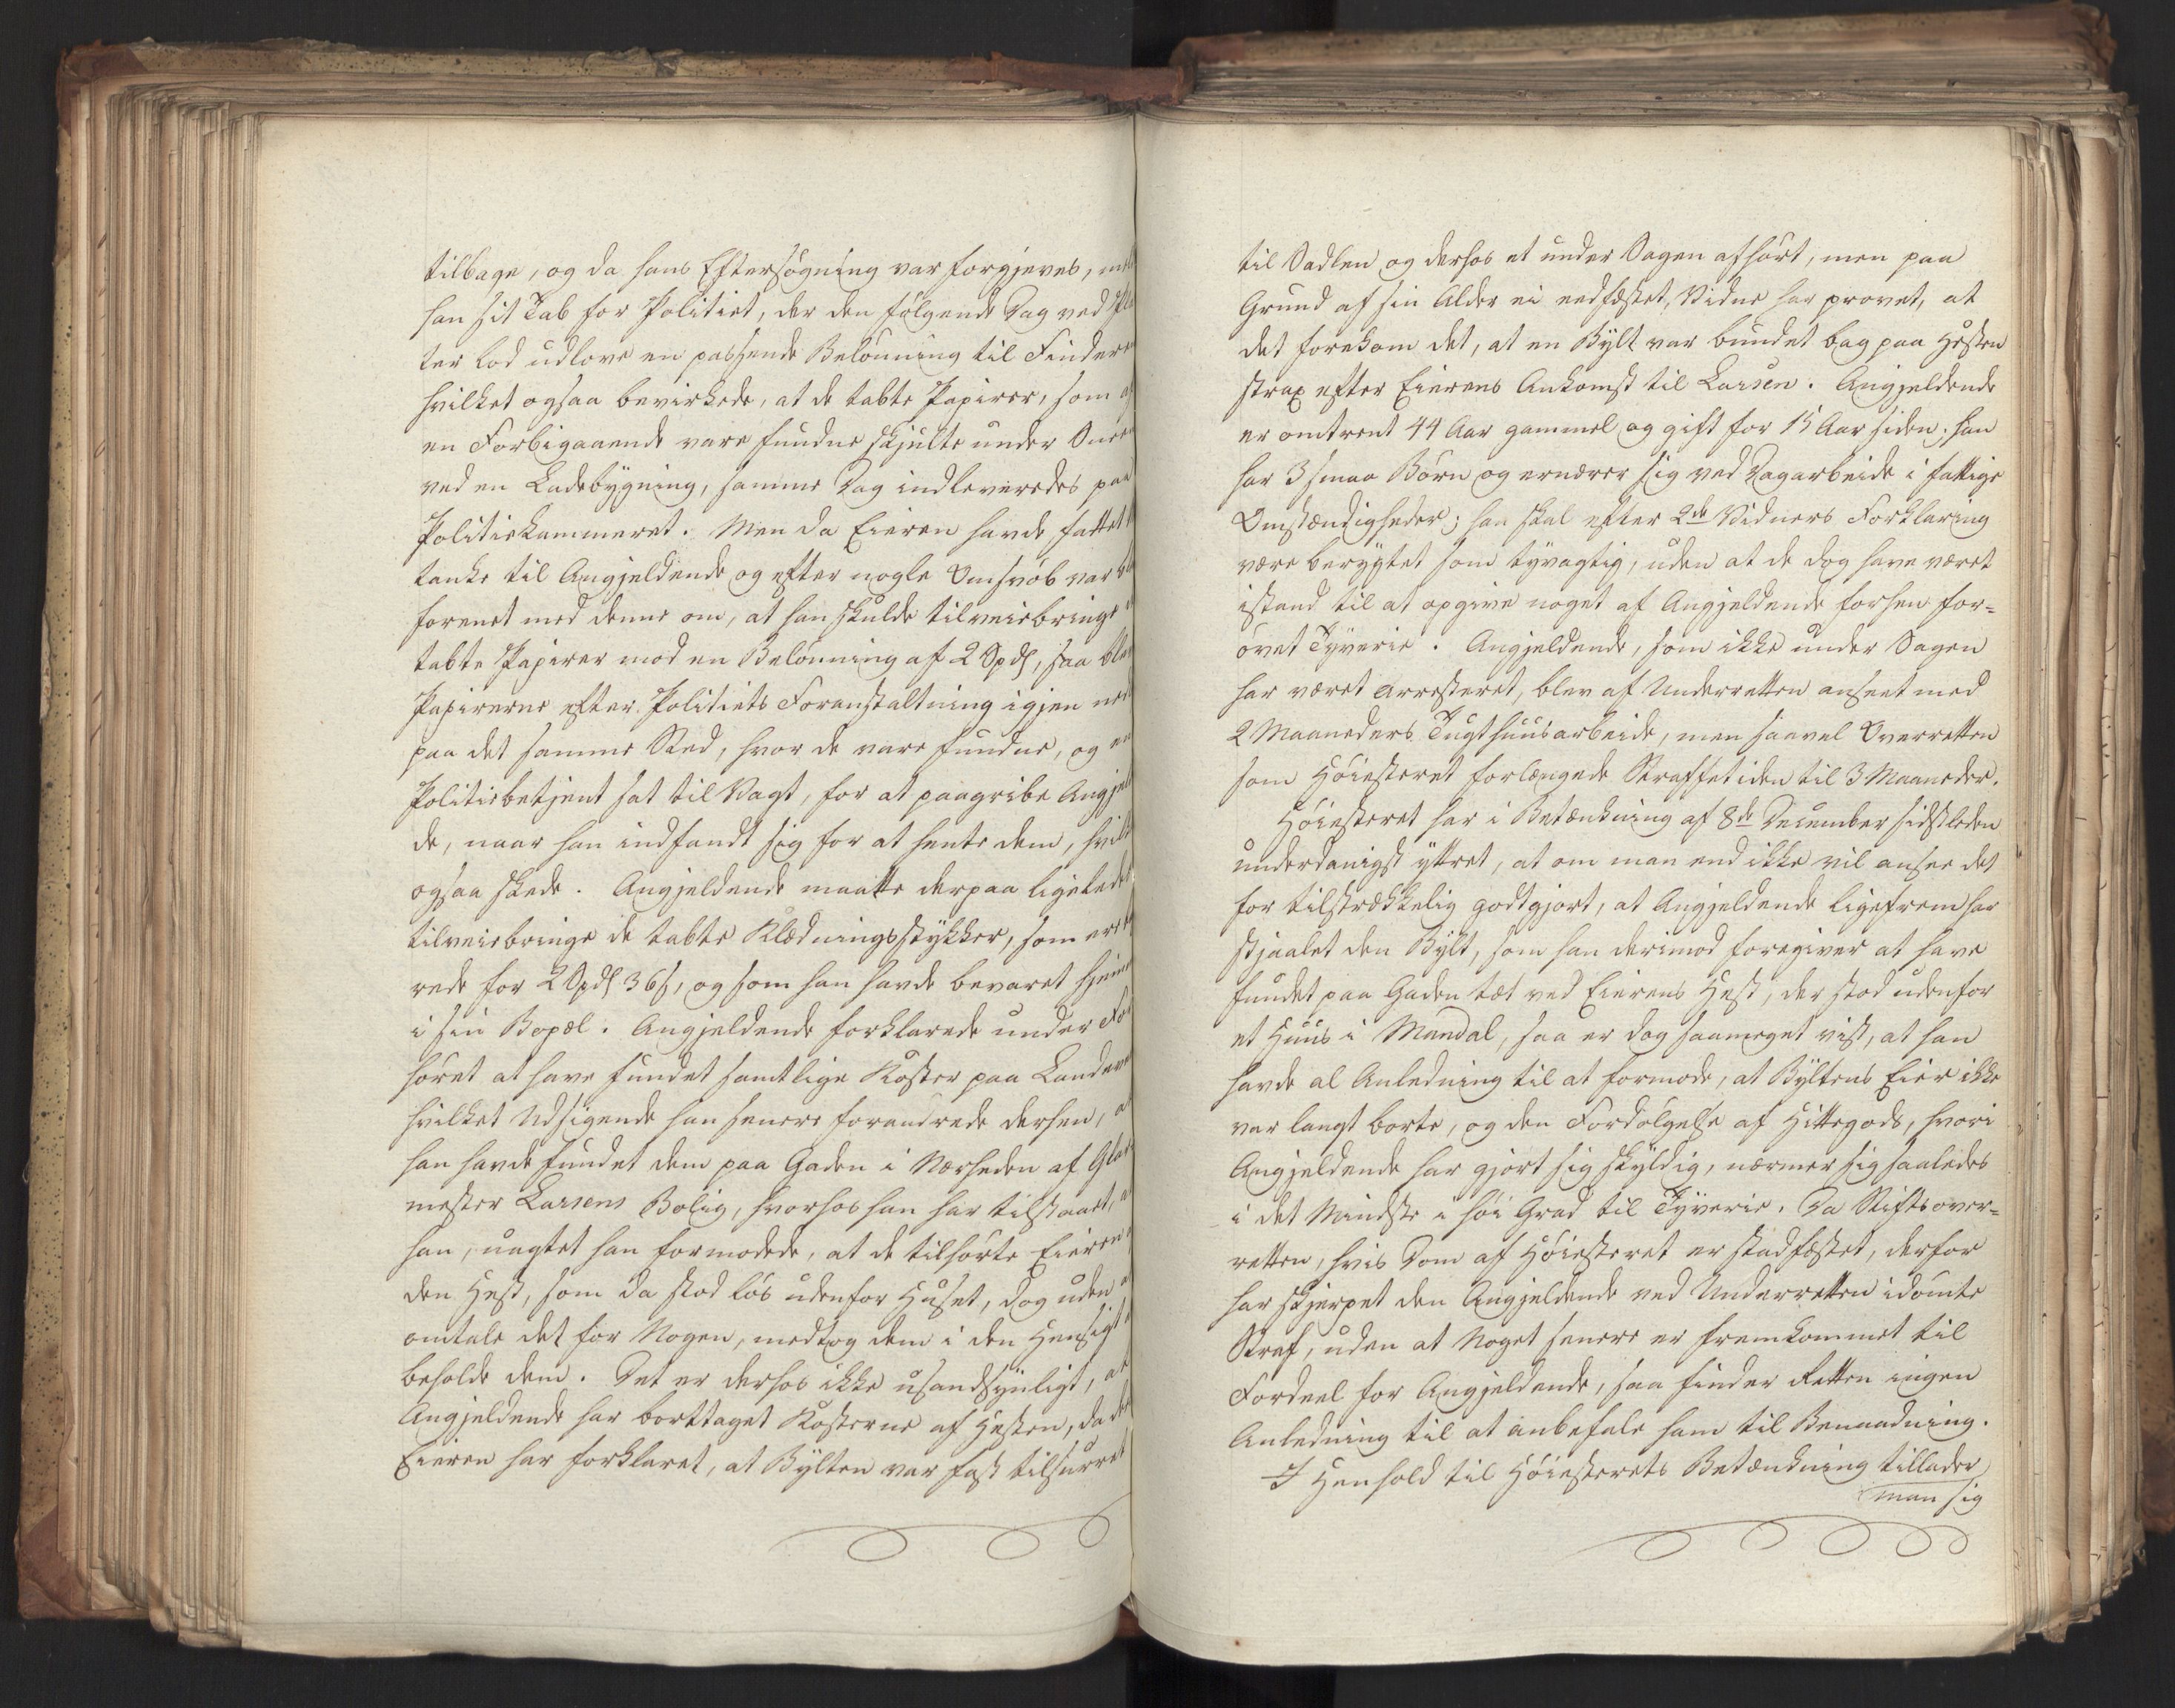 tilbage, og da hans Eftersøgning var forgjeves, 
han sit Tab for Politiet, der den følgende Dag ved
ter lod udlove en passende Belønning til Finderen
hvilket ogsaa bevirkede, at de tabte Papirer, som af
en Forbigaaende vare fundne skjulte under Sneen
ved en Ladebygning, samme Dag indleveredes paa
Politiekammeret. Men da Eieren havde fattet
tanke til Angjeldende og efter nogle Omsvøb var
forenet med denne om, at han skulde tilveiebringe
tabte Papirer mod en Belønning af 2 Spd, saa blev
Papirerne efter Politiets Foranstaltning igjen
paa det samme Sted, hvor de vare fundne, og en
Politiebetjent sat til Vagt, for at paagribe Angjel
de, naar han indfandt sig for at hente dem, hvilk
ogsaa skede. Angjeldende maatte derpaa ligeledes
tilveiebringe de tabte Klædningsstykker, som ere
rede for 2 Spd 36 s, og som han havde bevaret hjem
i sin Bopæl. Angjeldende forklarede under For
høret at have fundet samtlige Koster paa Landeve
hvilket Udsigende han senere forandrede derhen, at
han havde fundet dem paa Gaden i Nærheden af Glar
mester Larsens Bolig, hvorhos han har tilstaaet, at
han, uagtet han formodede, at de tilhørte Eieren
den Hest, som da stod løs udenfor Huset, dog uden at
omtale det for Nogen, medtog dem i den Hensigt
beholde dem. Det er derhos ikke usandsynligt, at
Angjeldende har borttaget Kosterne af Hesten, da
Eieren har forklaret, at Bylten var fast tilsurret
til Sadlen og derhos et under Sagen afhørt, men paa
Grund af sin Alder ei eedfæstet, Vidne har provet, at
det forekom det, at en Bylt var bundet bag paa Hesten
strax efter Eierens Ankomst til Larsen. Angjeldende
er omtrent 44 Aar gammel og gift for 15 Aar siden. han
har 3 smaa Børn og ernærer sig ved Dagarbeide i fattige
Omstændigheder; han skal efter 2de Vidners Forklaring
være berygtet som tyvagtig, uden at de dog have været
istand til at opgive noget af Angjeldende forhen for-
øvet Tyverie. Angjeldende, som ikke under Sagen
har været arresteret, blev af Underretten anseet med
2 Maaneders Tugthuusarbeide, men saavel Overretten
som Høiesteret forlængede Straffetiden til 3 Maaneder.
Høiesteret har i Betænkning af 8de December sidstleden
underdanigst yttret, at om man end ikke vil ansee det
for tilstrækkelig godtgjort, at Angjeldende ligefrem har
stjaalet den Bylt, som han derimod foregiver at have
fundet paa Gaden tæt ved Eierens Hest, der stod udenfor
et Huus i Mandal, saa er dog saameget vist, at han
havde al Anledning til at formode, at Byltens Eier ikke
var langt borte, og den Fordølgelse af Hittegods, hvori
Angjeldende har gjort sig skyldig, nærmer sig saaledes
i det Mindste i høi Grad til Tyverie. Da Stiftsover-
retten, hvis Dom af Høiesteret er stadfæstet, derfor
har skjerpet den Angjeldende ved Underretten idømte
Straf, uden at Noget senere er fremkommet til
Fordeel for Angjeldende, saa finder Retten ingen
Anledning til at anbefale ham til Benaadning.
I Henhold til Høiesterets Betænkning tillader
man sig